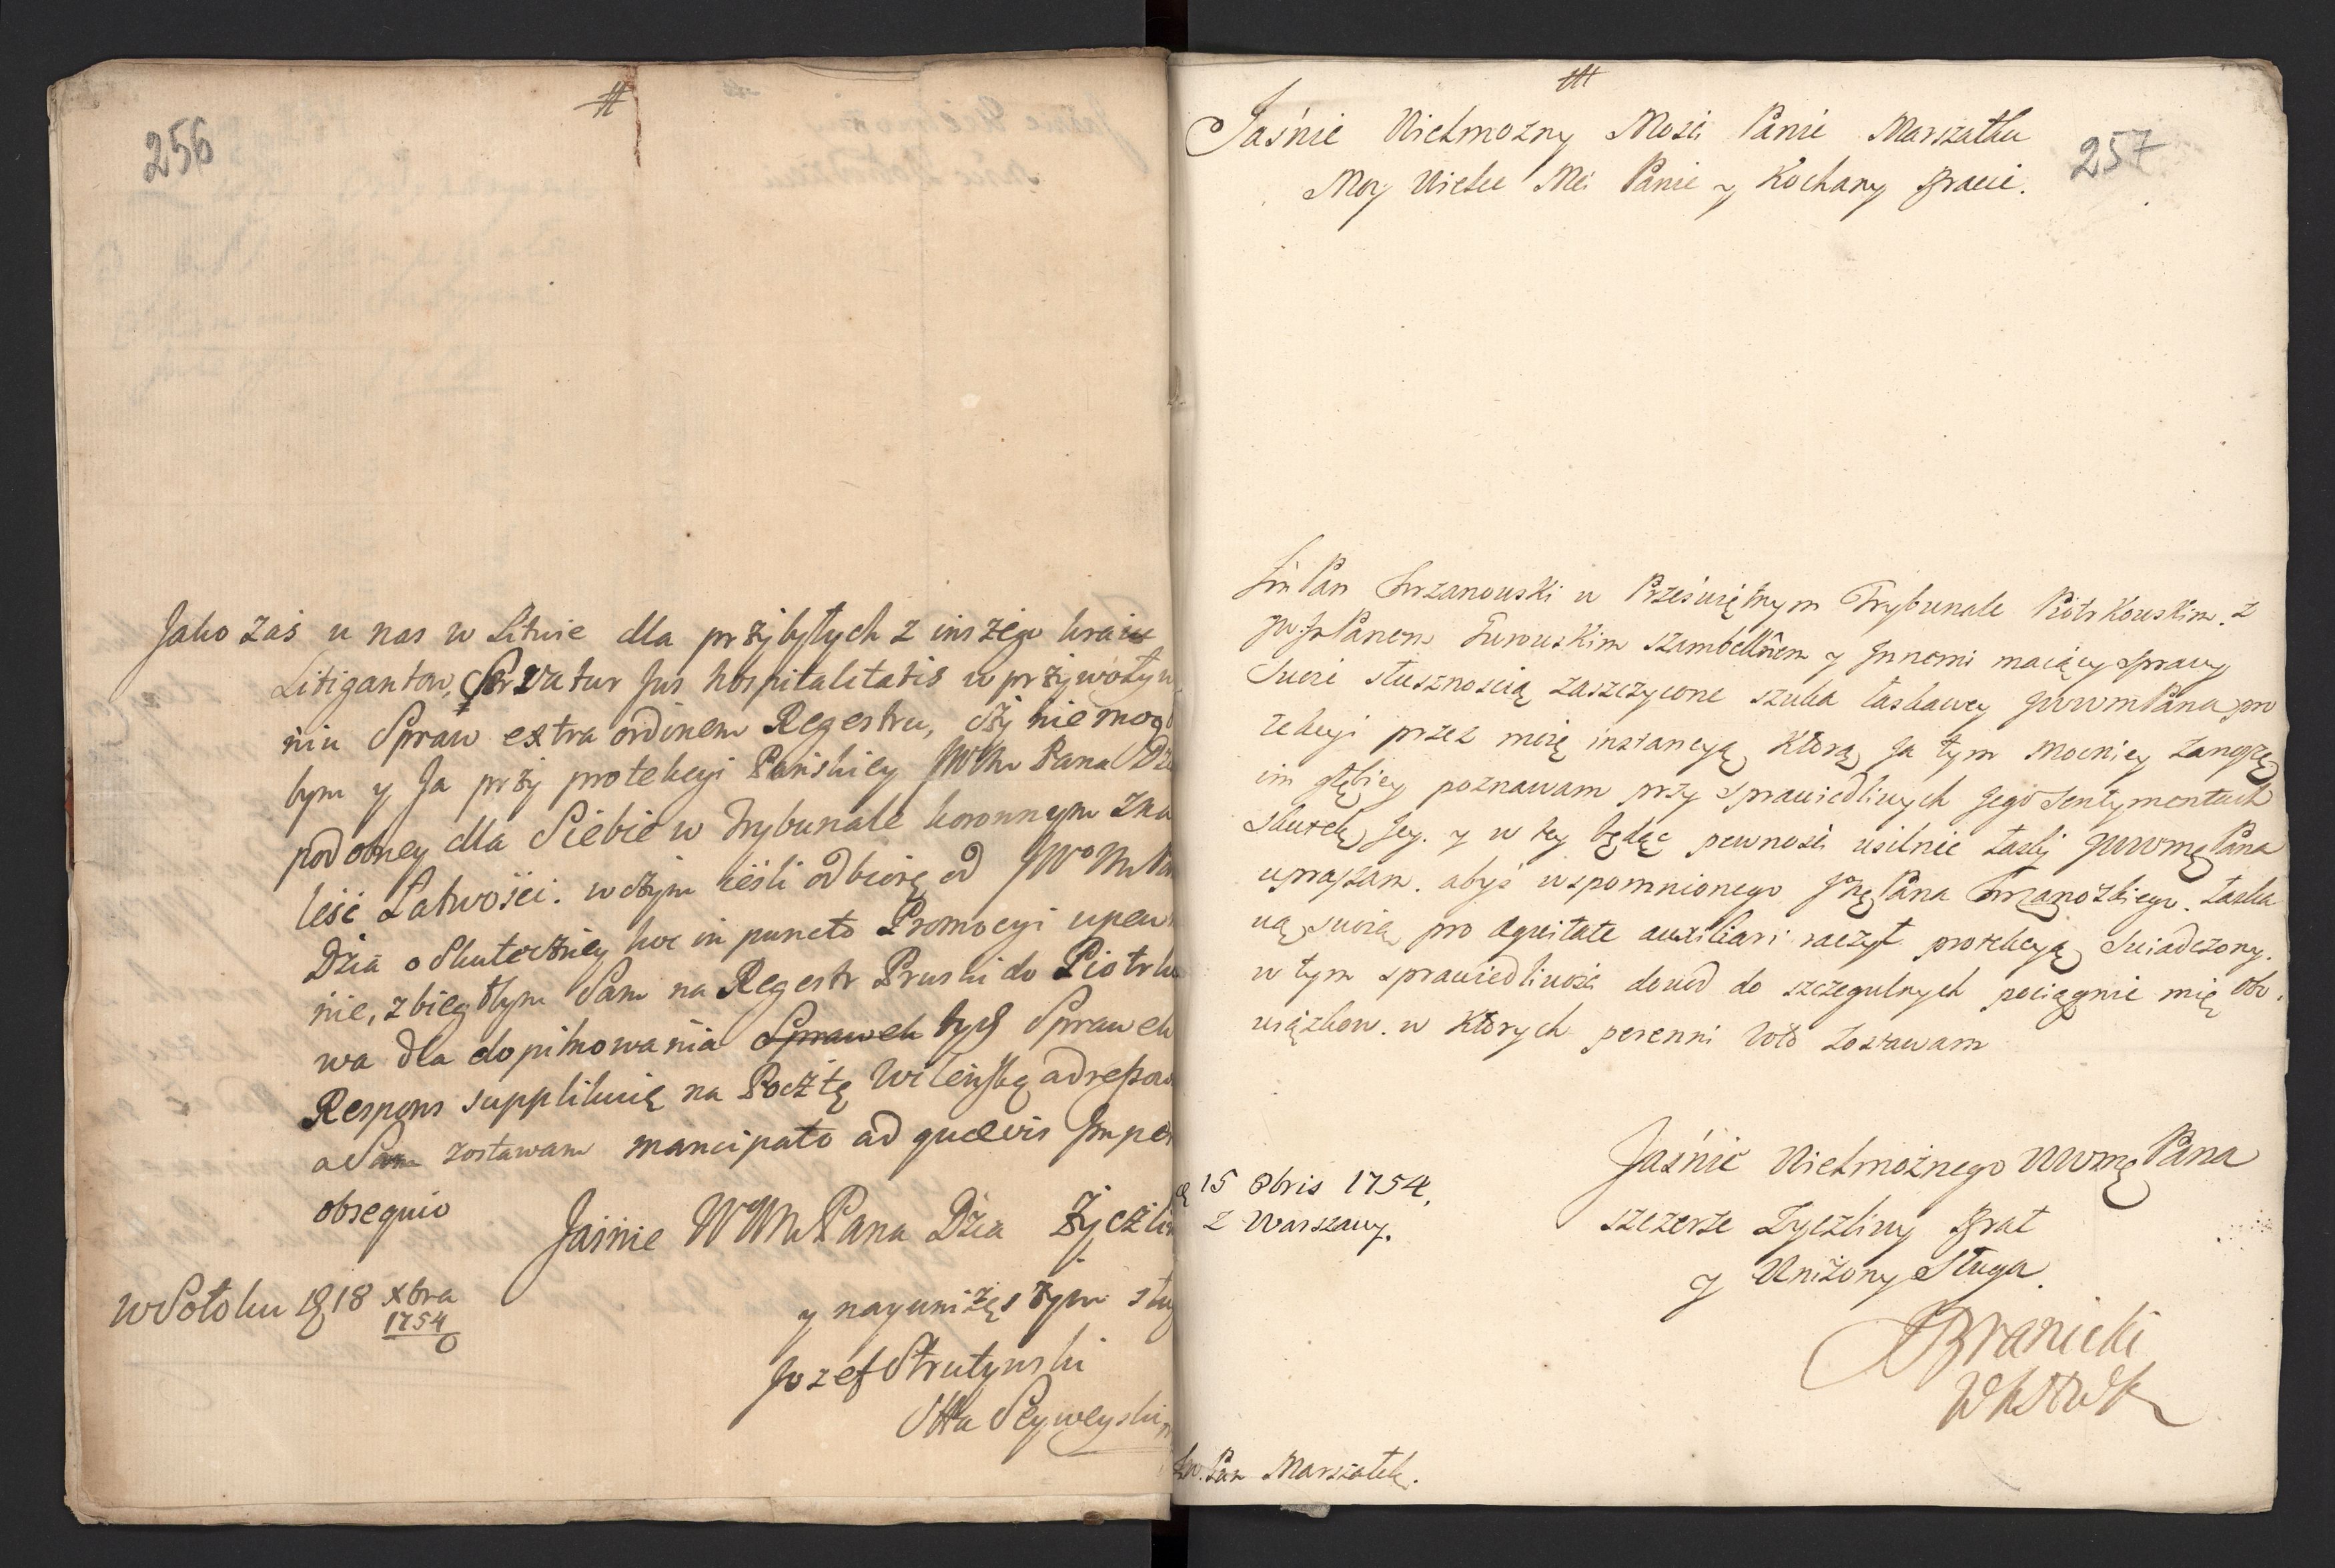 256
Jako zaś u nas w Litwie dla przybyłych z inszego kraiu
Litigantow, Servatur Jus hospitalitatis w przywoływ
niu Spraw extra ordinem Regestru, czy niemog
bym y Ja przy protekcyi Pańskiey JWMm Pana Dz
podobney dla Siebie w Trybunale koronnym zna
leść Łatwości. w czym ieśli odbiorę od JWoMm
Dzia o Skuteczney hoc in puncto Promocyi upew
nie, zbiegłbym Sam na Regestr Pruski do Piotrko
wa dla dopilnowania Sprawek tych Sprawek
Respons supplikuię na Pocztę Wileńską adresow
a Sam zostawam mancipato ad quævis Impe
obsequio
Jaśnie WWMPana Dzia życzli
y nayuniższym słu
Jozef Strutynski
Stta Seyweyski
w Sołoku 18 xbra
1754
257
Jaśnie Wielmozny Mości Panie Marszałku
Moy Wielce Mci Panie y Kochany Bracie.
Jm Pan Trzanowski w Przeświętnym Trybunale Piotrkowskim. z
Jw. Jm Panem Turowskim szambellnem y Jnnemi maiący sprawy
Swoie słusznością zaszczycone szuka łaskawey JwwmPana pro
tekcyi przez moię instancyą Którą Ja tym mocniey zanoszę
im głębiey poznawam przy sprawiedliwych Jego Sentymentach
skutek Jey. y w tey będąc pewności usilnie Łaski JwwmęPana
upraszam. abyś wspomnionego Jmę Pana Trzanowskiego. łaska
wą swoią pro æquitate auxiliari raczył protekcyą Swiadczony.
w tym sprawiedliwości dowod do szczegulnych pociągnie mię obo.
wiązkow. w Których perenni voto zostawam
Jaśnie Wielmożnego WwmęPana
szczerze Zyczliwy Brat
y Uniżony Sługa
JBranicki
WKHWK
15 8bris 1754.
z Warszawy.
Jw. Pan Marszałek.